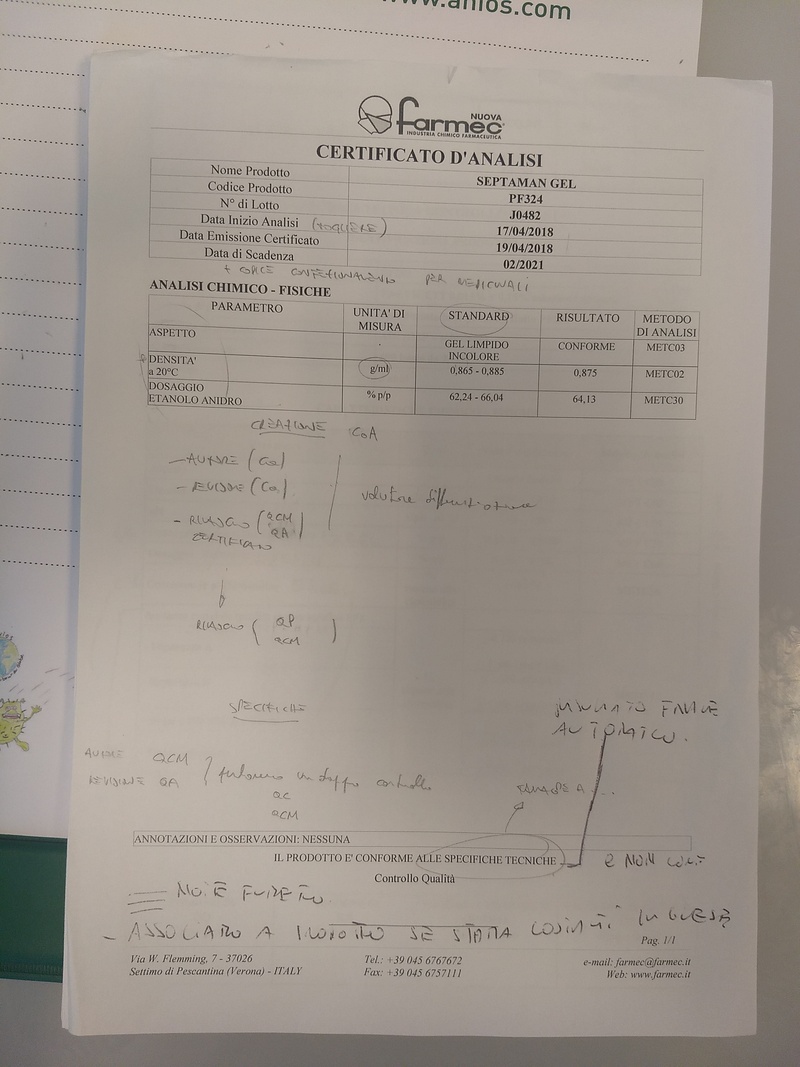 www.anios.com
NUOVA
farmec
INDUSTRIA CHIMICO FARMACEUTICA
CERTIFICATO D'ANALISI
Nome Prodotto SEPTAMAN GEL
Codice Prodotto PF324
N° di Lotto J0482
Data Inizio Analisi (TOGLIERE) 17/04/2018
Data Emissione Certificato 19/04/2018
Data di Scadenza 02/2021
+ CODICE CONFEZIONAMENTO PER MEDICINALI
ANALISI CHIMICO - FISICHE
PARAMETRO UNITA' DI MISURA STANDARD RISULTATO METODO DI ANALISI
ASPETTO . GEL LIMPIDO INCOLORE CONFORME METC03
DENSITA' a 20°C g/ml 0,865 - 0,885 0,875 METC02
DOSAGGIO ETANOLO ANIDRO % p/p 62,24 - 66,04 64,13 METC30
CREAZIONE CoA
- AUTORE
- REVISORE
- RILASCIO (QCM QA)
CERTIFICATO
RILASCIO ( QP QCM )
SPECIFICHE
AUTORE QCM
REVISIONE QA
un doppio controllo
QC
QCM
AUTOMATICO.
ANNOTAZIONI E OSSERVAZIONI: NESSUNA
IL PRODOTTO E' CONFORME ALLE SPECIFICHE TECNICHE
E NON
Controllo Qualità
NOTE
- ASSOCIARLO A PRODOTTO SE STAMPA IN INGLESE
Pag. 1/1
Via W. Flemming, 7 - 37026 Tel.: +39 045 6767672 e-mail: farmec@farmec.it
Settimo di Pescantina (Verona) - ITALY Fax: +39 045 6757111 Web: www.farmec.it